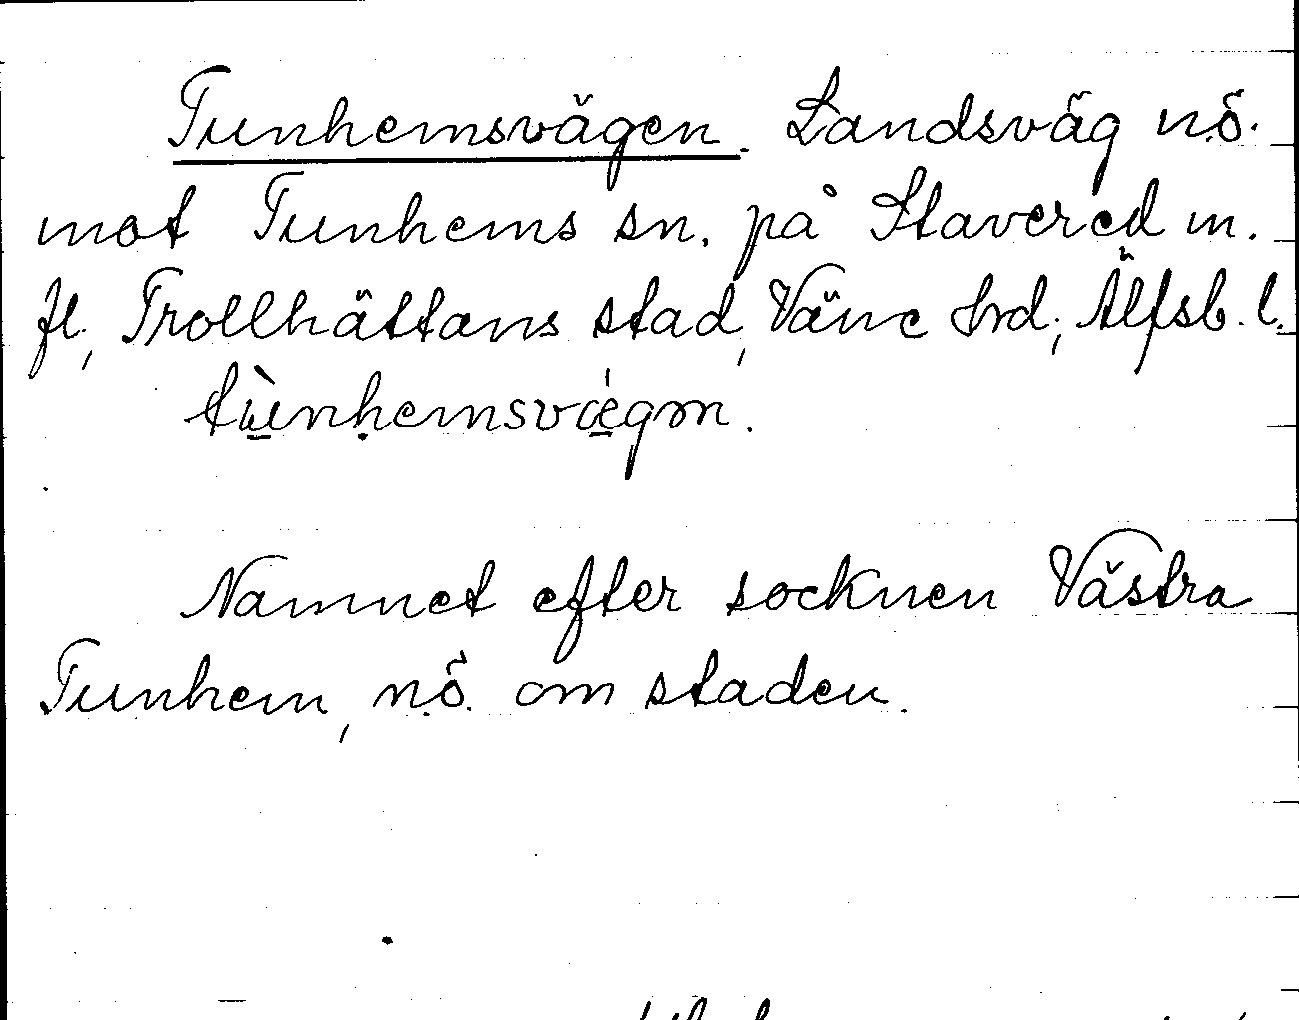 Tunhemsvägen. Landsväg nö.
mot Tunhems sn. på Stavered m.
fl., Trollhättans stad, Väne hrd; Älfsb. l.
tùnhemsvǽgm.
Namnet efter socknen Västra
Tunhem, nö. om staden.